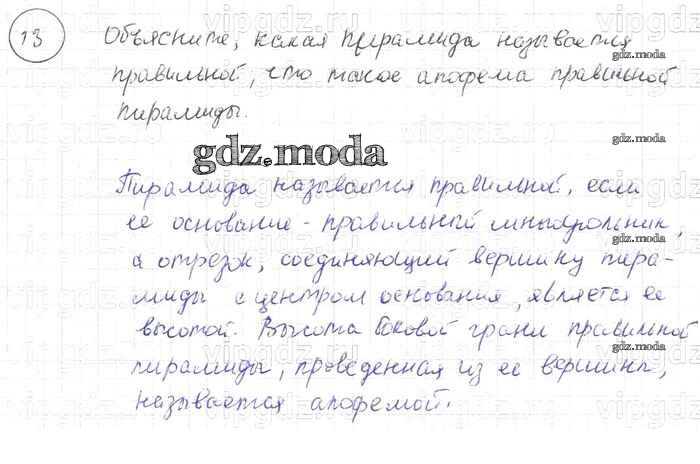 13
Объясните, какая пирамида называется
правильной, что такое апофема правильной
пирамиды.
gdz.moda
Пирамида называется правильной, если
ее основание - правильный многоугольник,
а отрезок, соединяющий вершину пира-
миды с центром основания, является ее
высотой. Высота боковой грани правильной
пирамиды, проведенная из ее вершины,
называется апофемой.